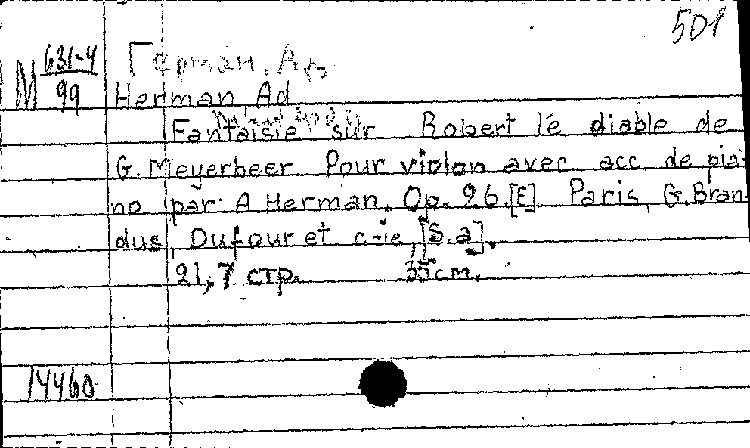 501
М 631-4
99
Герман, Ад.
Herman Ad
Fantaisie sur Robert le diable de
G. Meyerbeer Pour violon avec acc. de pia-
no par A Herman. Op. 26.[E] Paris, G.Bran-
dus, Dufour et c-ie, [S.a].
21, 7 стр. 35 см.
14460